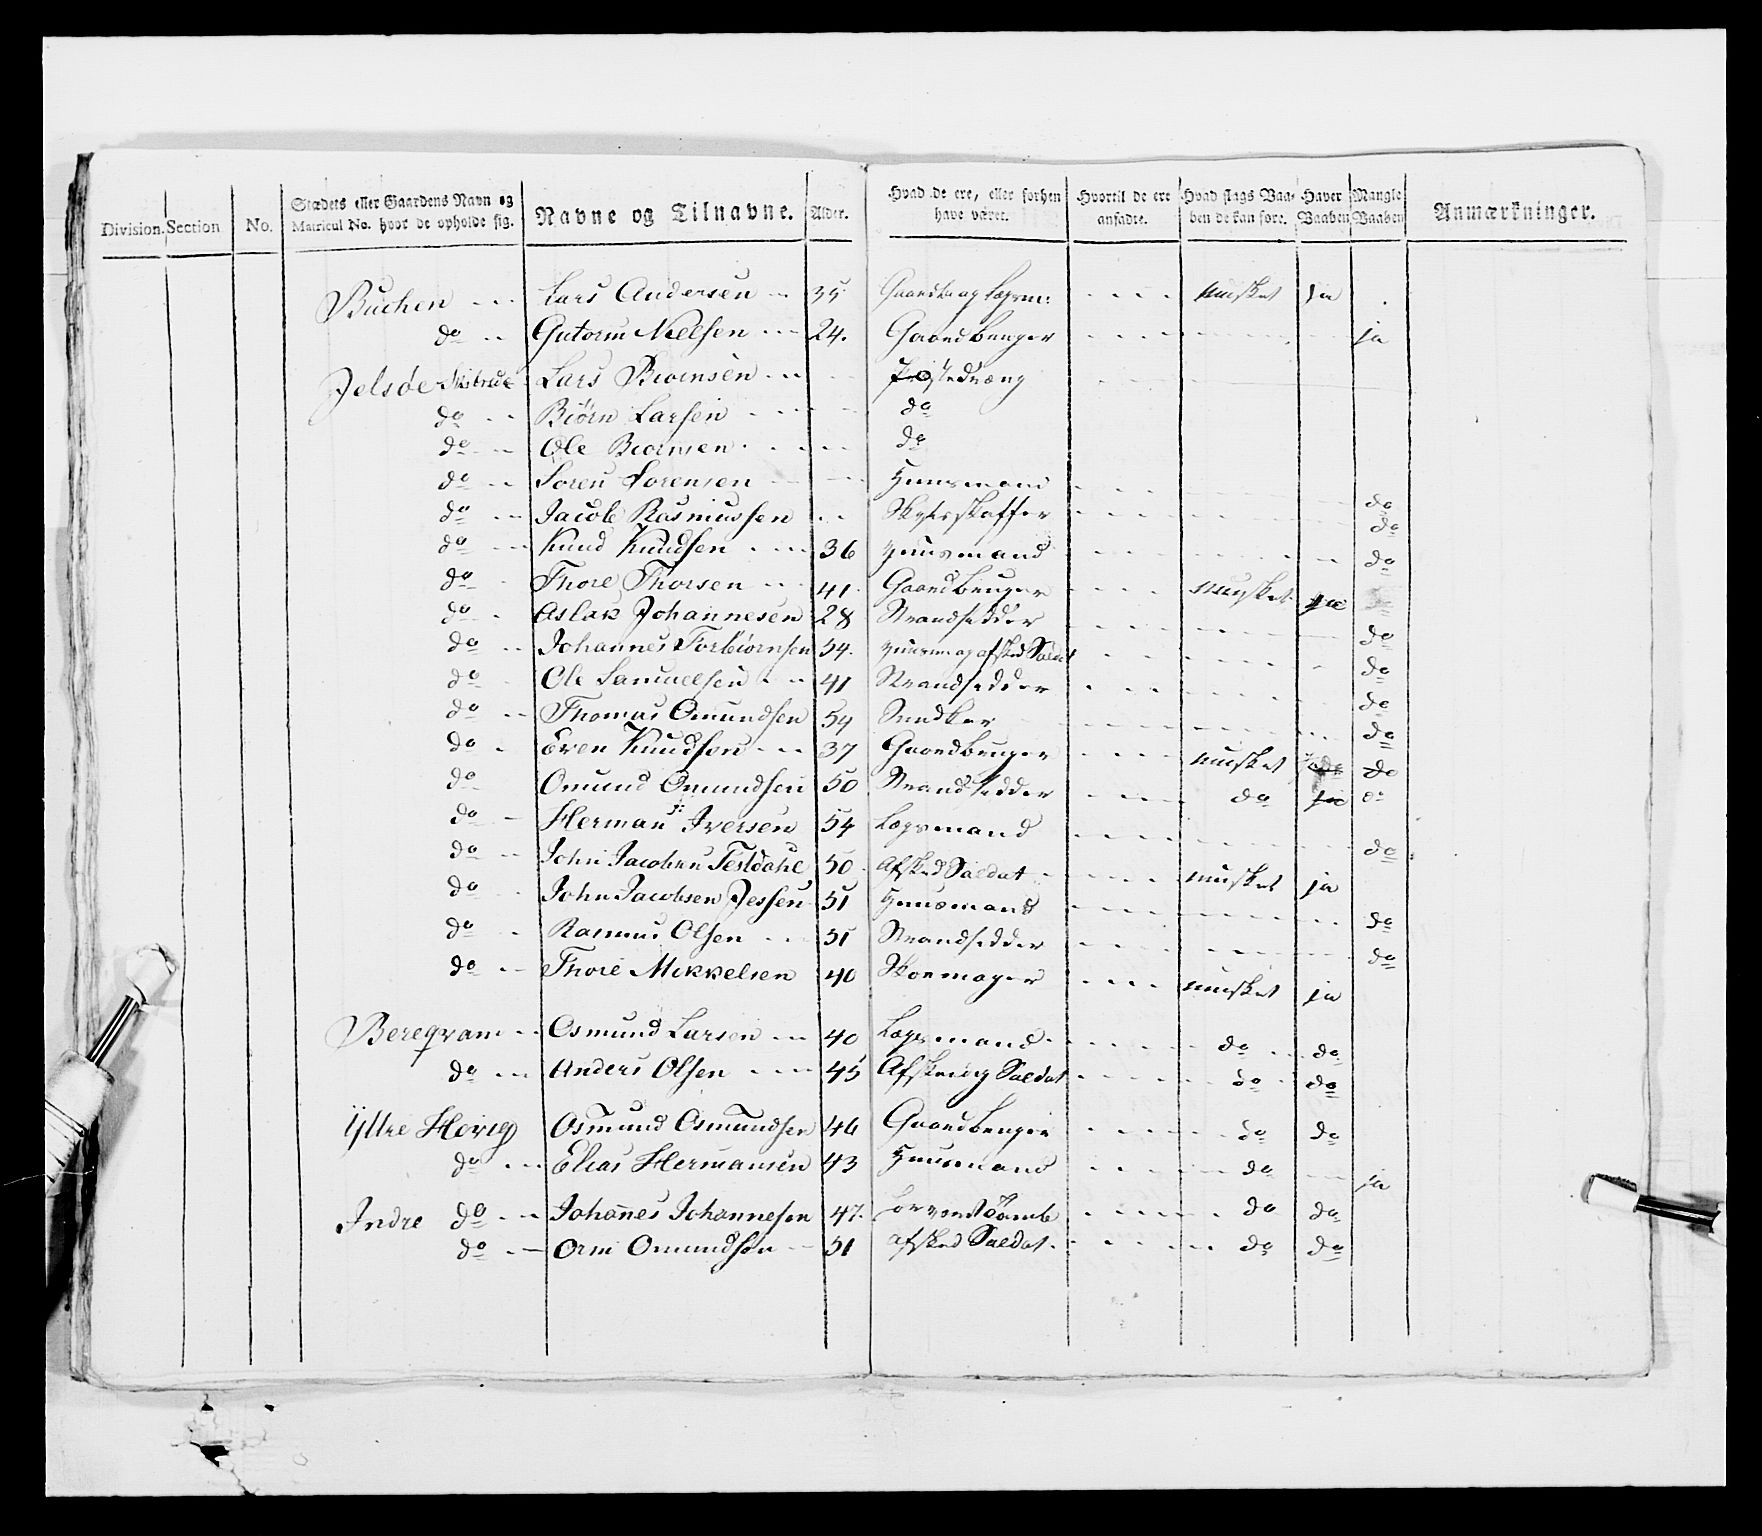 Division. Section No. Stædets eller Gaardens Navn og Matricul No. hvor de opholde sig. Navne og Tilnavne. Alder. Hvad de ere, eller forhen have været. Hvortil de ere ansadte. Hvad slags Vaaben de kan føre. Haver Vaaben Mangle Vaaben Anmærkninger.
Buchen Lars Andersen 35 musket ja
do Gutorm Nielsen 24. Gaardbruger ja
Jelsøe Lars Biørnsen
do Biörn Larsen do
do Ole Biornsen do
do Soren Sorensen Huusmand do
do Jacob Rasmussen Skydsskaffer do
do Knud Knudsen 36 Huusmand do
do Thore Thorsen 41 Gaardbruger musket ja
do Aslak Johannesen 28 Strandsidder do
do Johannes Torbiørnsen 54. Huusm og afsked Saldat do
do Ole Samuelsen 41 Strandsidder do
do Thomas Omundsen 54 Snedker do
do Even Knudsen 37 Gaardbruger musket do
do Omund Omundsen 50 Strandsidder do ja do
do Herman Iversen 54 Lægsmand do
do John Jacobsen 50 Afsked Saldat musket ja
do John Jacobsen Jessen 51 Huusmand do
do Rasmus Olsen 51 Strandsidder do
do Thore Mikkelsen 40 Skoemager musket ja
Bereqvam Osmund Larsen 40 Lægsmand do do
do Anders Olsen 45 Saldat do do
Yttre Hervig Osmund Osmundsen 46 Gaardbruger do do
do Elias Hermansen 43 Huusmand do ja
Indre do Johanes Johannesen 47. do do
do Orm Omundsen 51 afsked Saldat do do